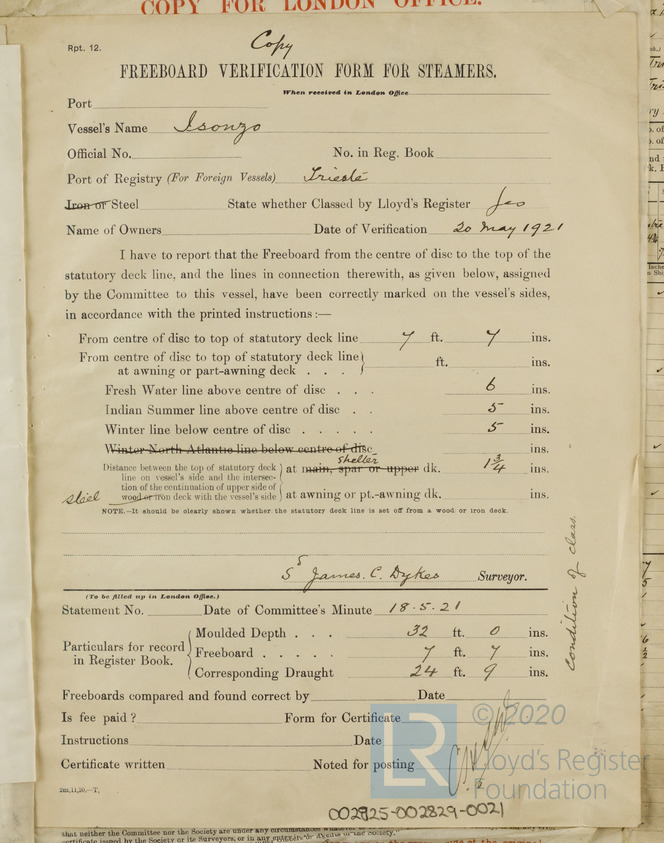 COPY FOR LONDON OFFICE.
Rpt. 12.
Copy
FREEBOARD VERIFICATION FORM FOR STEAMERS.
When received in London Office
Port
Vessel's Name Isonzo
Official No. No. in Reg. Book
Port of Registry (For Foreign Vessels) Trieste
Iron or Steel State whether Classed by Lloyd's Register Yes
Name of Owners Date of Verification 20 May 1921
I have to report that the Freeboard from the centre of disc to the top of the
statutory deck line, and the lines in connection therewith, as given below, assigned
by the Committee to this vessel, have been correctly marked on the vessel's sides,
in accordance with the printed instructions :—
From centre of disc to top of statutory deck line 7 ft. 7 ins.
From centre of disc to top of statutory deck line
at awning or part-awning deck . . . ft. ins.
Fresh Water line above centre of disc . . . 6 ins.
Indian Summer line above centre of disc . . 5 ins.
Winter line below centre of disc . . . . . 5 ins.
Winter North Atlantic line below centre of disc ins.
shelter
Distance between the top of statutory deck
line on vessel's side and the intersec- at main, spar or upper dk. 1 3/4 ins.
tion of the continuation of upper side of
steel wood or iron deck with the vessel's side at awning or pt.-awning dk. ins.
NOTE.—It should be clearly shown whether the statutory deck line is set off from a wood or iron deck.
Sd James. C. Dykes Surveyor.
(To be filled up in London Office.)
Statement No. Date of Committee's Minute 18.5.21
Particulars for record in Register Book.
Moulded Depth . . . 32 ft. 0 ins.
Freeboard . . . . . 7 ft. 7 ins.
Corresponding Draught 24 ft. 9 ins.
condition of class.
Freeboards compared and found correct by Date
Is fee paid ? Form for Certificate
Instructions Date
Certificate written Noted for posting
2m,11,20.—T.
© 2020
LR
Lloyd's Register
Foundation
002825-002829-0021
that neither the Committee nor the Society are under any circumstances